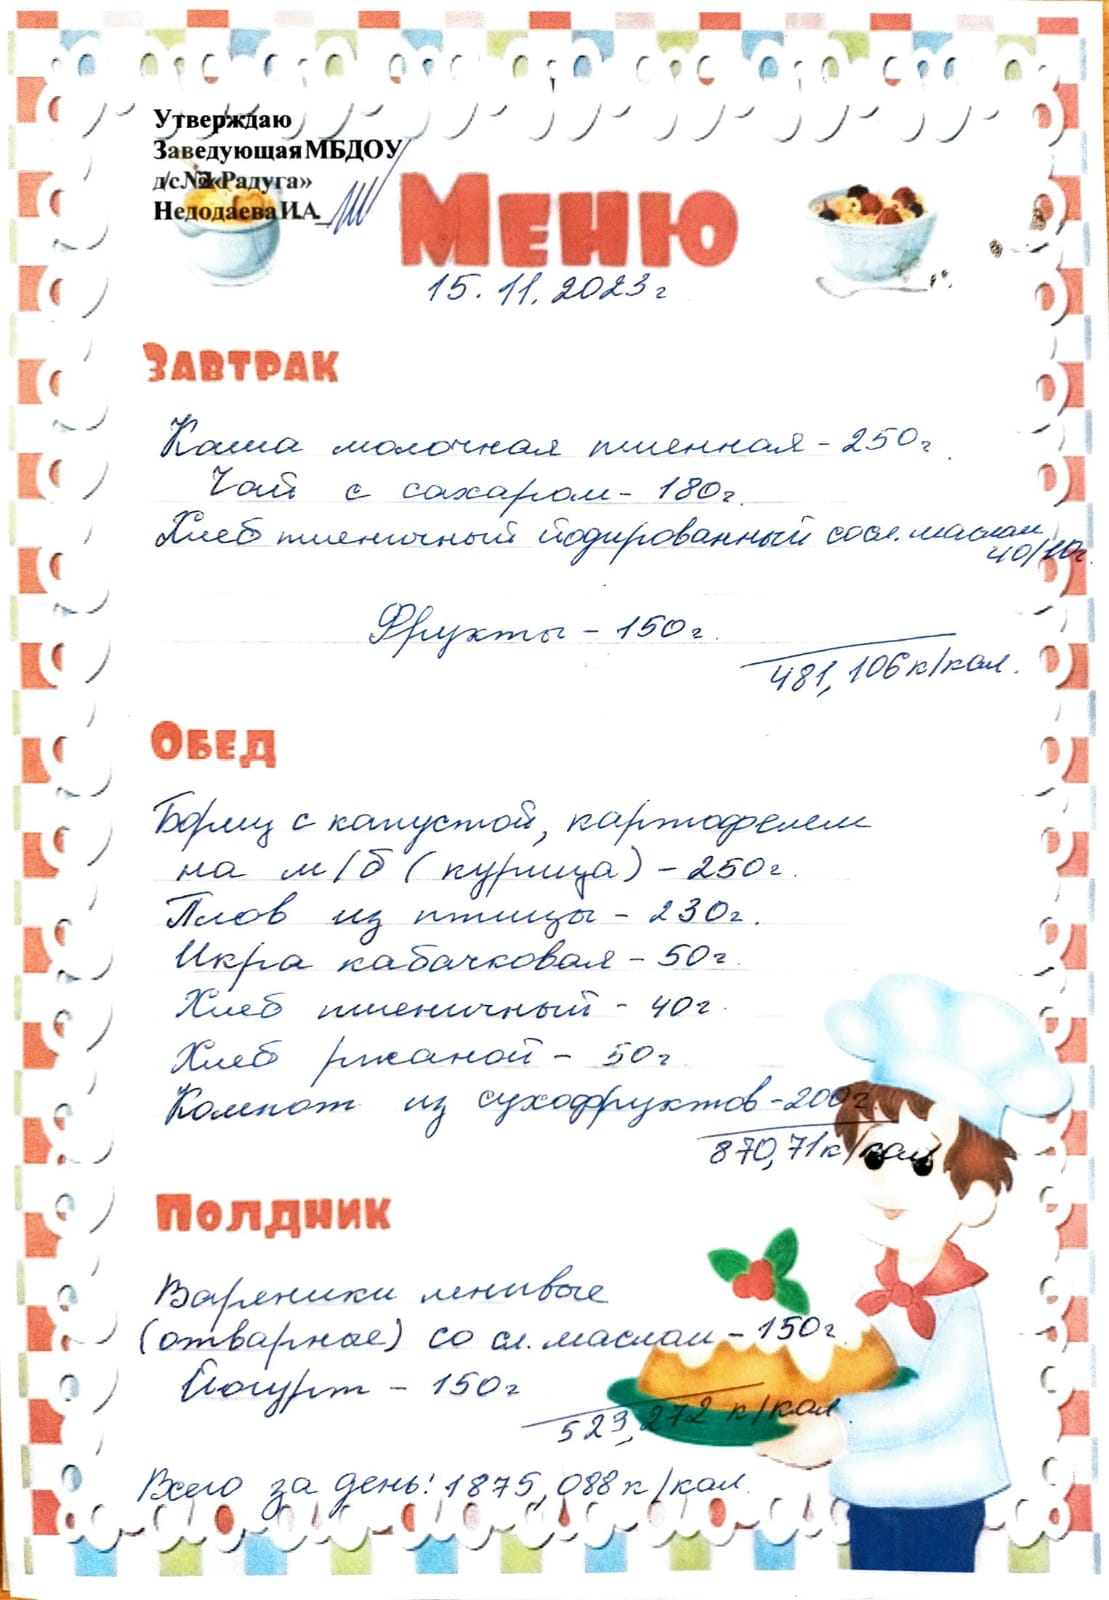 Утверждаю
Заведующая МБДОУ
д/с №2 «Радуга»
Недодаева И.А.
Меню
15.11.2023г
Завтрак
Каша молочная пшенная - 250г.
Чай с сахаром - 180г.
Хлеб пшеничный йодированный со сл. маслом
40/10г.
Фрукты - 150г.
481,106 к/кал.
Обед
Борщ с капустой, картофелем
на м/б (курица) - 250г.
Плов из птицы - 230г.
Икра кабачковая - 50г.
Хлеб пшеничный - 40г.
Хлеб ржаной - 50г.
Компот из сухофруктов - 200г.
870,71 к/кал
Полдник
Вареники ленивые
(отварные) со сл. маслом - 150г.
Йогурт - 150г
523,272 к/кал.
Всего за день: 1875,088 к/кал.